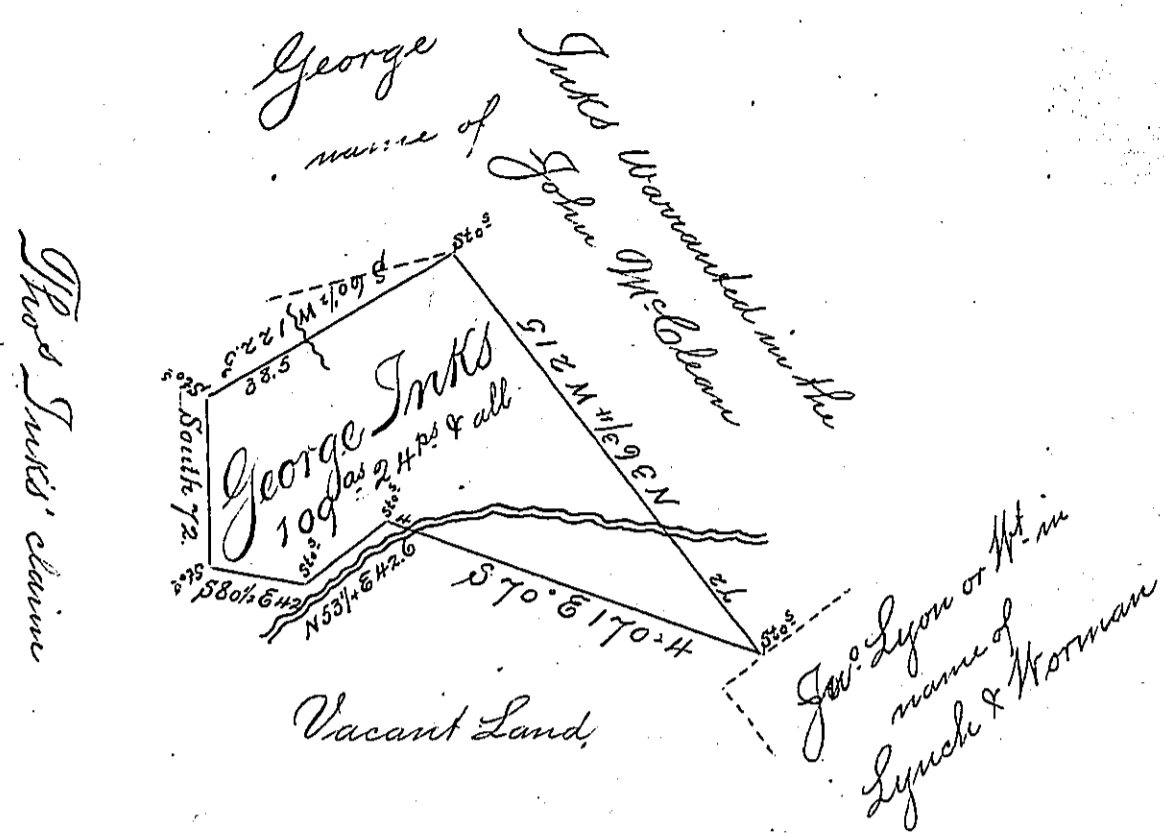 George Inks Warranted in the
name of John McClean
Tho's Inks' claim
Sto^s
S 60 1/2 W 122.5
88.5
N 36 3/4 W 215
Sto^s
South 72.
George Inks
109 as 24 ps & all
Sto^s
Sto^s
Sto^s
4
S 80 1/2 E 42
N 53 1/4 E 42.6
S 70 E 170.4
72
Sto^s
Vacant Land,
Jno. Lyon or Wt. in
name of
Lynch & Worman